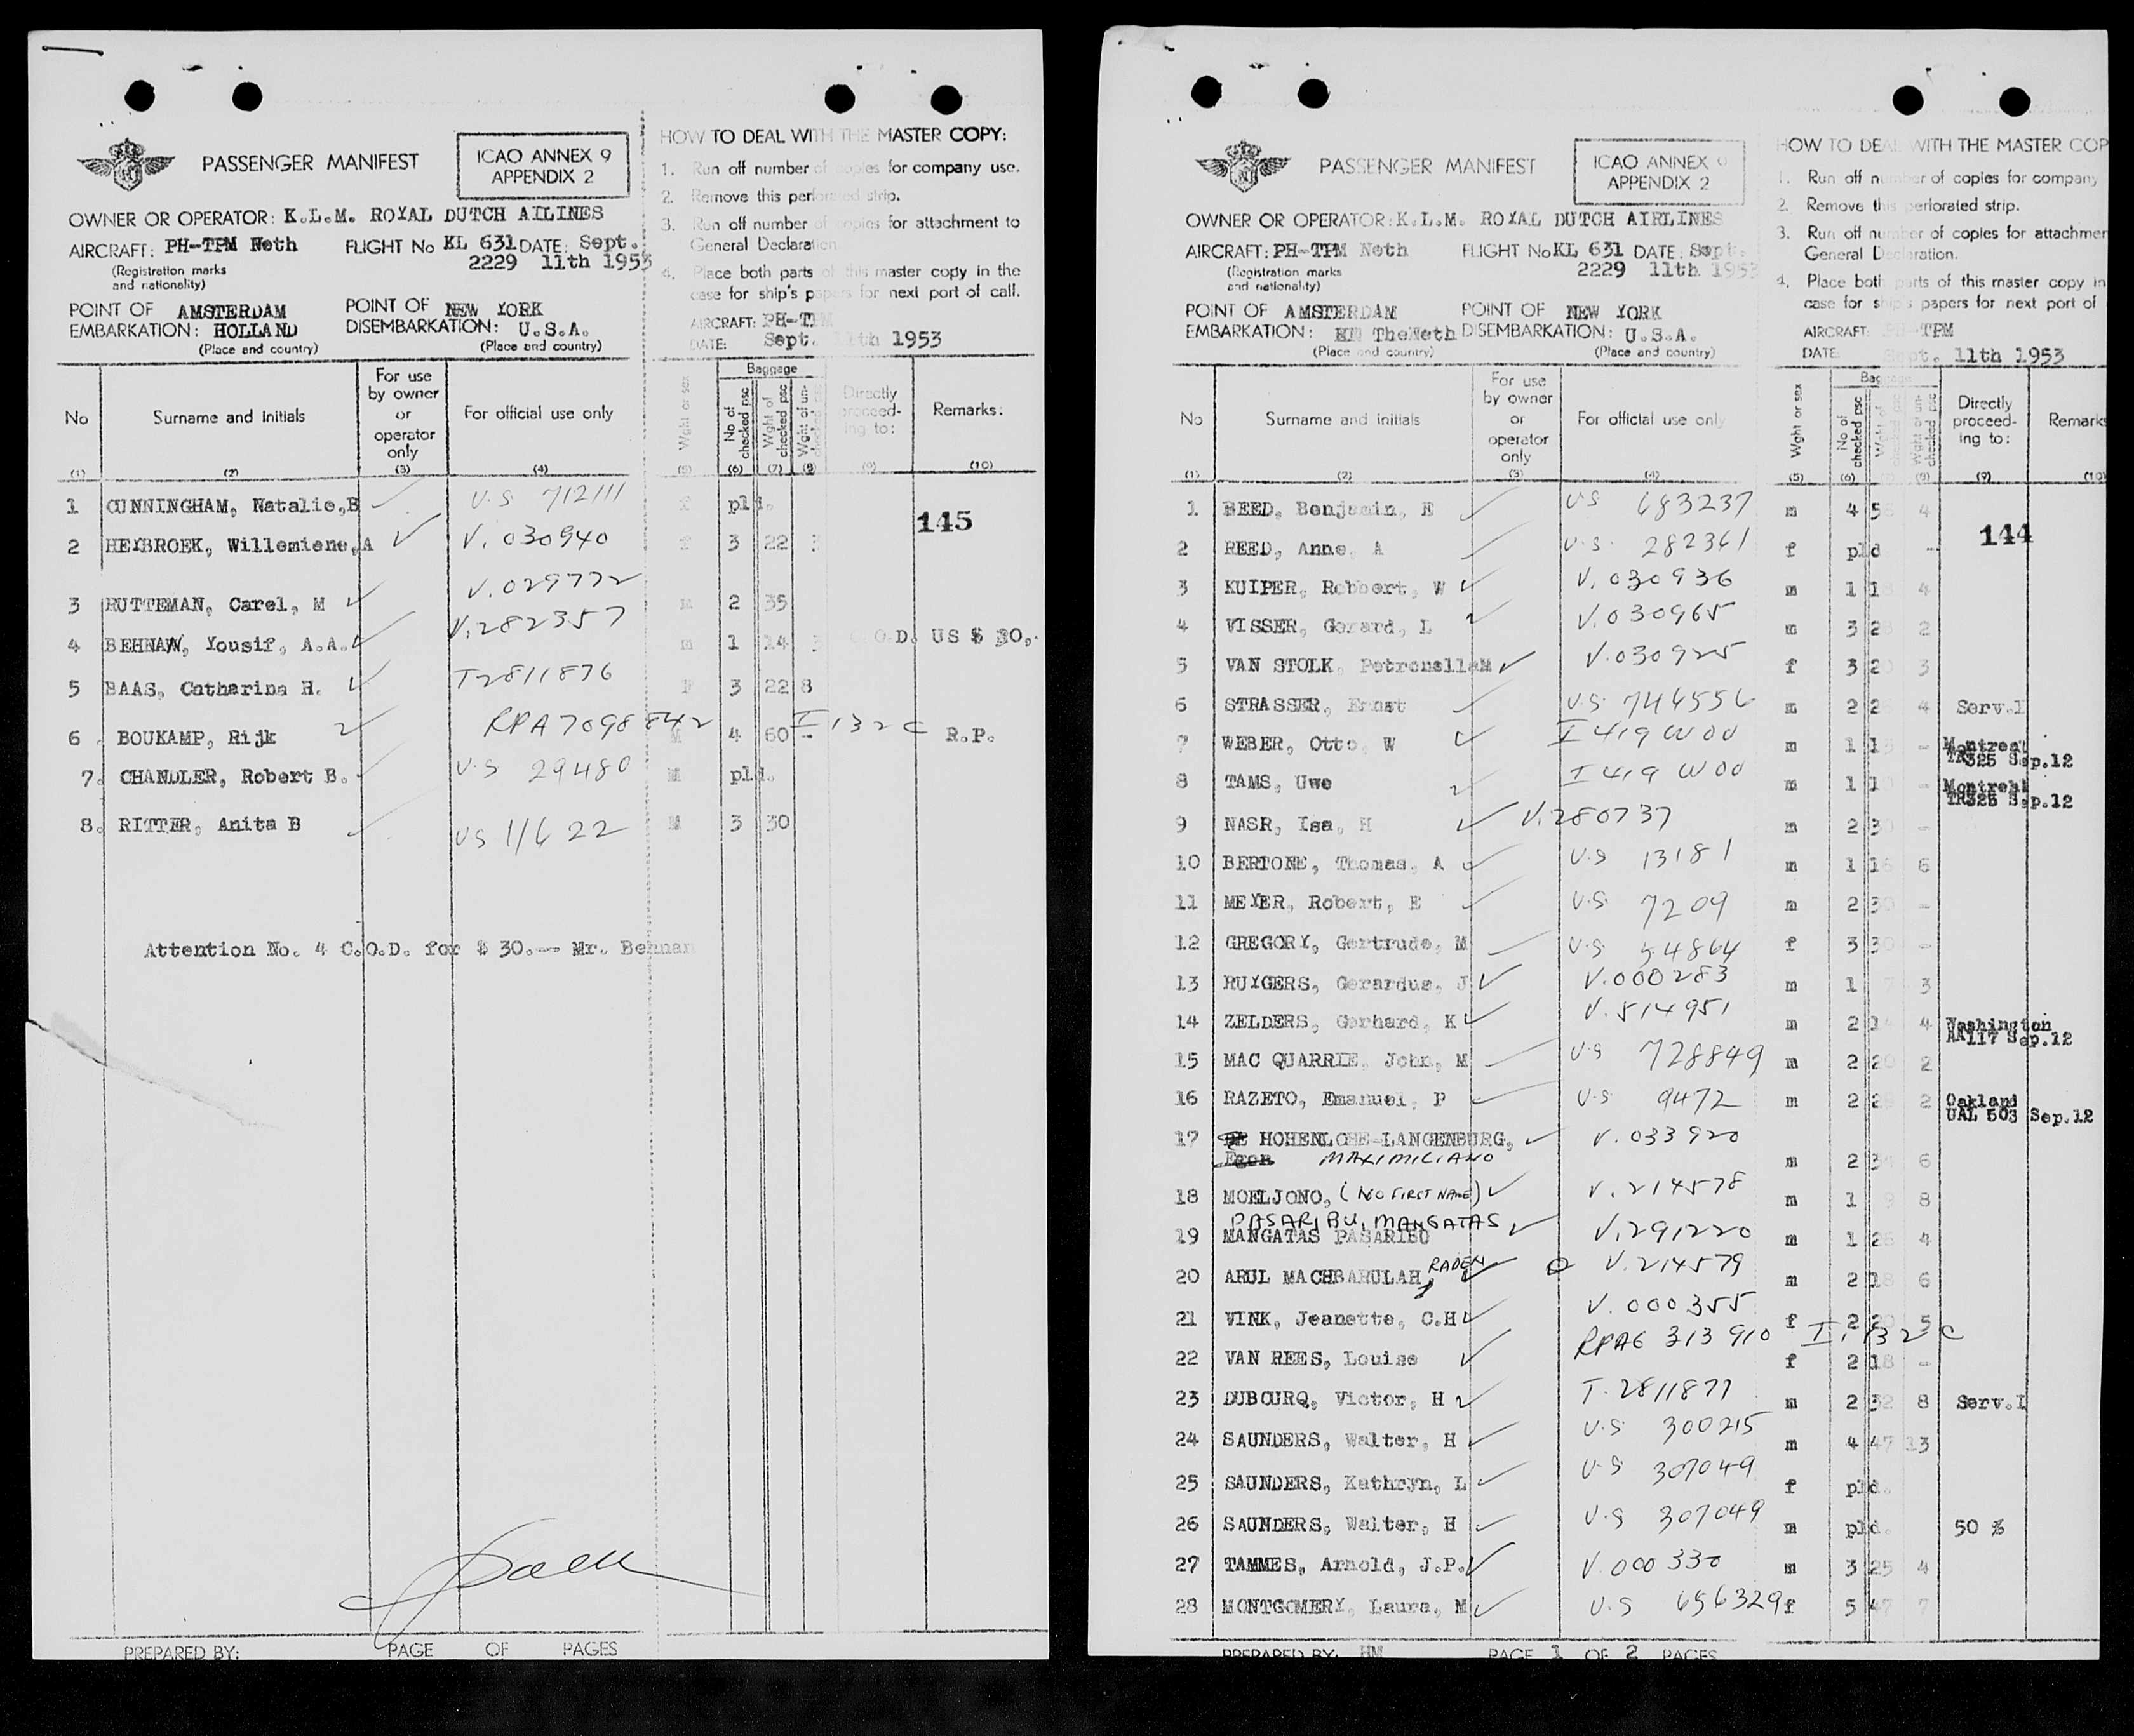 PASSENGER MANIFEST
ICAO ANNEX 9
APPENDIX 2
OWNER OR OPERATOR: K.L.M. ROYAL DUTCH AILINES
AIRCRAFT: PH-TPM Neth FLIGHT No KL 631 DATE: Sept.
(Registration marks 2229 11th 1953
and nationality)
POINT OF AMSTERDAM POINT OF NEW YORK
EMBARKATION: HOLLAND DISEMBARKATION: U.S.A.
(Place and country) (Place and country)
HOW TO DEAL WITH THE MASTER COPY:
1. Run off number of copies for company use.
2. Remove this perforated strip.
3. Run off number of copies for attachment to
General Declaration
4. Place both parts of this master copy in the
case for ship's papers for next port of call.
AIRCRAFT: PH-TPM
DATE: Sept. 11th 1953
No Surname and initials For use by owner or operator only For official use only Wght or sex Baggage No of checked psc Wght of checked psc Wght of un-checked psc Directly proceed-ing to: Remarks:
(1) (2) (3) (4) (5) (6) (7) (8) (9) (10)
1 CUNNINGHAM, Natalie,B U.S 712111 f pld.
145
2 HEYBROEK, Willemiene,A V. 030940 f 3 22 3
3 RUTTEMAN, Carel, M V. 029772 m 2 35
4 BEHNAW, Yousif, A.A. V.282357 m 1 14 3 C.O.D. US $ 30,-
5 BAAS, Catharina H. T2811876 F 3 22 8
6 BOUKAMP, Rijk RPA 7098842 M 4 60 - I 132 C R.P.
7. CHANDLER, Robert B. U.S 29480 M pld.
8. RITTER, Anita B US 11622 M 3 30
Attention No. 4 C.O.D. for $ 30.-- Mr. Behnam
PREPARED BY: PAGE OF PAGES
PASSENGER MANIFEST
ICAO ANNEX 9
APPENDIX 2
OWNER OR OPERATOR: K.L.M. ROYAL DUTCH AIRLINES
AIRCRAFT: PH-TPM Neth FLIGHT No KL 631 DATE: Sept.
(Registration marks 2229 11th 1953
and nationality)
POINT OF AMSTERDAM POINT OF NEW YORK
EMBARKATION: TheNeth DISEMBARKATION: U.S.A.
(Place and country) (Place and country)
HOW TO DEAL WITH THE MASTER COP
1. Run off number of copies for company
2. Remove this perforated strip.
3. Run off number of copies for attachmen
General Declaration.
4. Place both parts of this master copy in
case for ship's papers for next port of
AIRCRAFT: PH-TPM
DATE: Sept. 11th 1953
No Surname and initials For use by owner or operator only For official use only Wght or sex Baggage No of checked psc Wght of checked psc Wght of un-checked psc Directly proceed-ing to: Remarks
(1) (2) (3) (4) (5) (6) (8) (9) (10)
1. REED, Benjamin, E US 683237 m 4 5 4
144
2 REED, Anne, A U.S. 282361 f pld -
3 KUIPER, Robbert, W V. 030936 m 1 1 4
4 VISSER, Gerard, L V.030965 m 3 2 2
5 VAN STOLK, Petronella M V.030925 f 3 2 3
6 STRASSER, Ernst U.S. 746556 m 2 2 4 Serv.I
7 WEBER, Otto, W I 419 W00 m 1 1 - Montreal
TR325 Sep.12
8 TAMS, Uwe I 419 W00 m 1 1 - Montreal
TR325 Sep.12
9 NASR, Isa, H V.280737 m 2 3 -
10 BERTONE, Thomas, A U.S 13181 m 1 1 6
11 MEYER, Robert, E U.S. 7209 m 2 3 -
12 GREGORY, Gertrude, M U.S 54864 f 3 3 -
13 RUYGERS, Gerardus, J V.000283 m 1 7 3
14 ZELDERS, Gerhard, K V.514951 m 2 1 4 Washington
AA117 Sep.12
15 MAC QUARRIE, John, M U.S 728849 m 2 2 2
16 RAZETO, Emanuel, P U.S 9472 m 2 2 2 Oakland
UAL 503 Sep.12
17 HOHENLOHE-LANGENBURG, V.033920
Egon MAXIMILIANO m 2 3 6
18 MOELJONO, (NO FIRST NAME) V.214578 m 1 9 8
PASARIBU, MANGATAS
19 MANGATAS PASARIBO V.291220 m 1 2 4
20 ARUL MACHBARULAH, RADEN V.214579 m 2 1 6
21 VINK, Jeanette, C.H V. 000355 f 2 2 5
22 VAN REES, Louise RPAE 313910 I, 132 C f 2 18 -
23 DUBOURQ, Victor, H T. 2811877 m 2 32 8 Serv.I
24 SAUNDERS, Walter, H U.S 300215 m 4 47 13
25 SAUNDERS, Kathryn, L U.S 307049 f pld.
26 SAUNDERS, Walter, H U.S 307049 m pld. 50 %
27 TAMMES, Arnold, J.P. V.000330 m 3 25 4
28 MONTGOMERY, Laura, M U.S 656329 f 5 47 7
PREPARED BY: HM PAGE 1 OF 2 PAGES